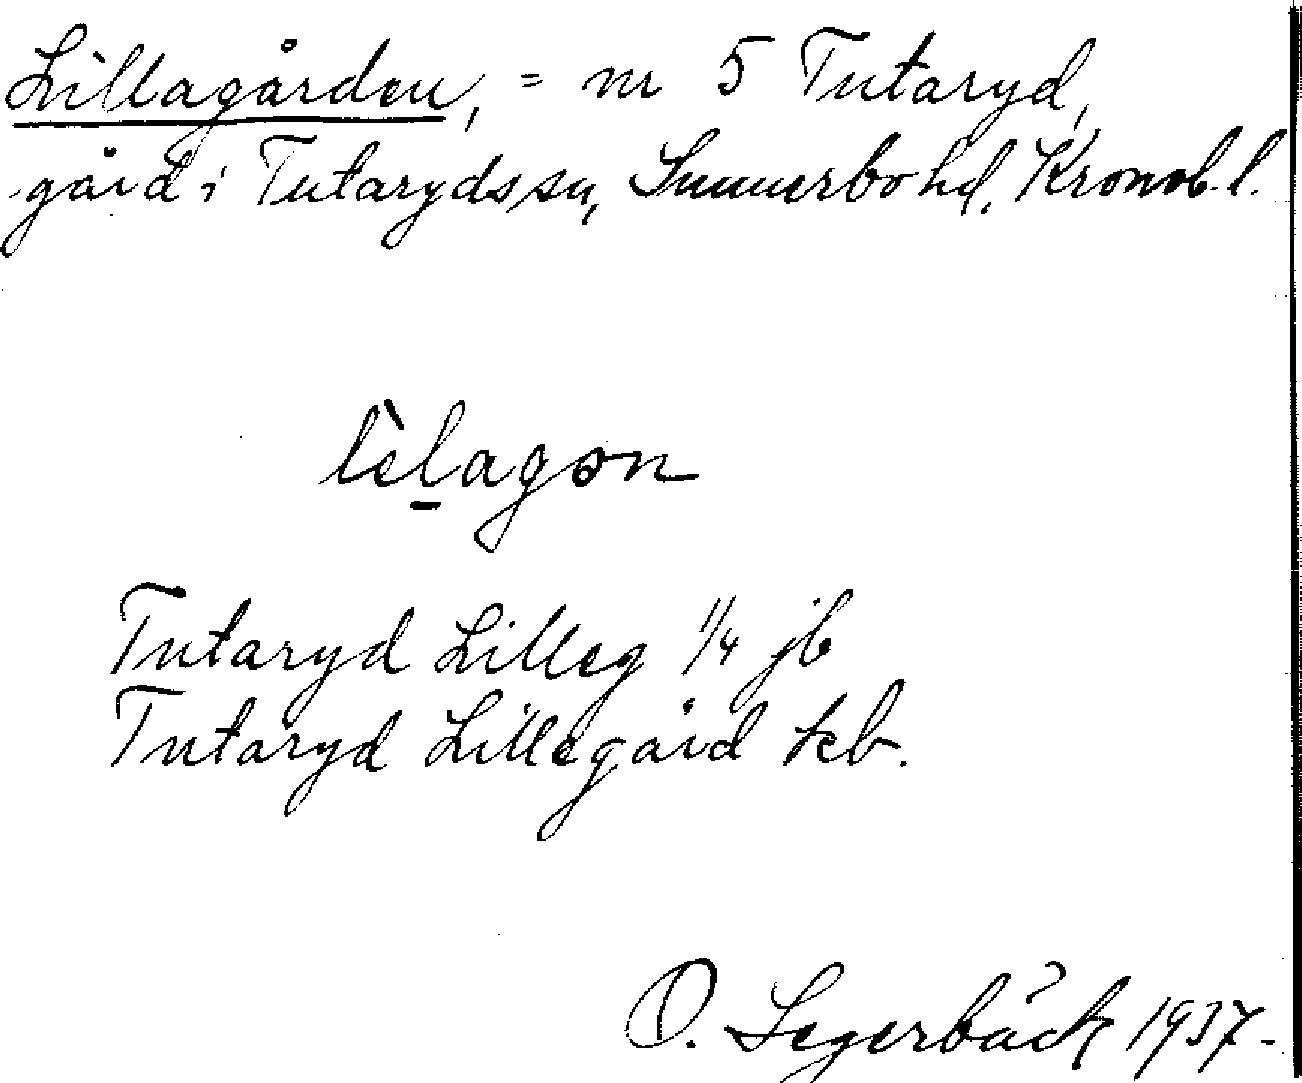 Lillagården, = nr 5 Tutaryd,
gård i Tutaryds sn, Sunnerbo hd, Kronob. l.
lèl̲agɵn
Tutaryd Lilleg 1/4 jb
Tutaryd Lillegård kb.
O. Segerbäck 1937.